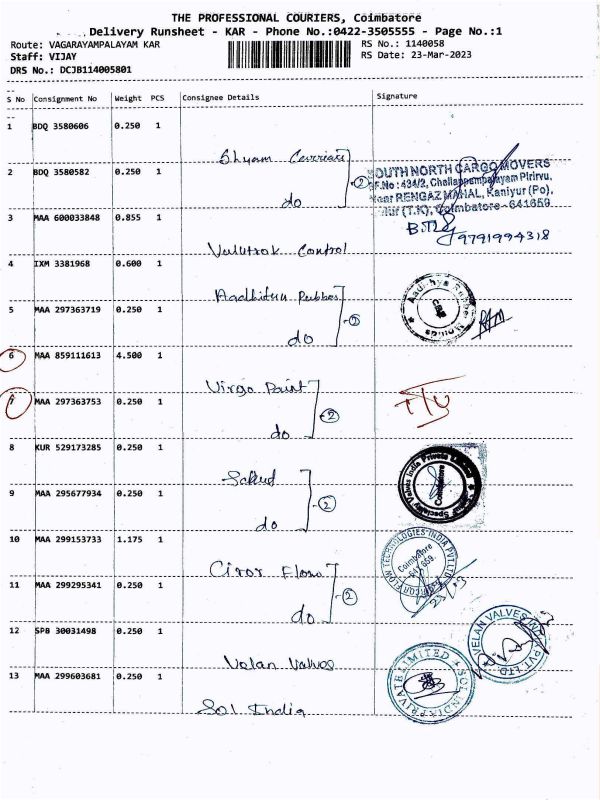 THE PROFESSIONAL COURIERS, Coimbatore
Delivery Runsheet - KAR - Phone No.:0422-3505555 - Page No.:1
Route: VAGARAYAMPALAYAM KAR
RS No.: 1140058
Staff: VIJAY
RS Date: 23-Mar-2023
DRS No.: DCJB114005801
S No Consignment No Weight PCS Consignee Details Signature
1 BDQ 3580606 0.250 1
Shyam
2 BDQ 3580582 0.250 1
do
2
SOUTH NORTH CARGO MOVERS
S.F.No : 434/2, Challappampalayam Pirivu,
Near RENGAZ MAHAL, Kaniyur (Po),
(T.K), Coimbatore - 641659.
9791994318
3 MAA 600033848 0.855 1
Control
4 IXM 3381968 0.600 1
Aadhitya Rubber
5 MAA 297363719 0.250 1
do
2
Aadithya Rubber
6 MAA 859111613 4.500 1
Virgo Paint
7 MAA 297363753 0.250 1
do
2
8 KUR 529173285 0.250 1
9 MAA 295677934 0.250 1
do
2
Specialty Valves India Private Limited
Coimbatore
10 MAA 299153733 1.175 1
Circor Flow
11 MAA 299295341 0.250 1
do
2
CIRCOR FLOW TECHNOLOGIES INDIA PVT LTD
Coimbatore
641 659.
23/03
12 SPB 30031498 0.250 1
Velan Valves
VELAN VALVES INDIA PVT LTD
13 MAA 299603681 0.250 1
Sol India
SOL INDIA PRIVATE LIMITED